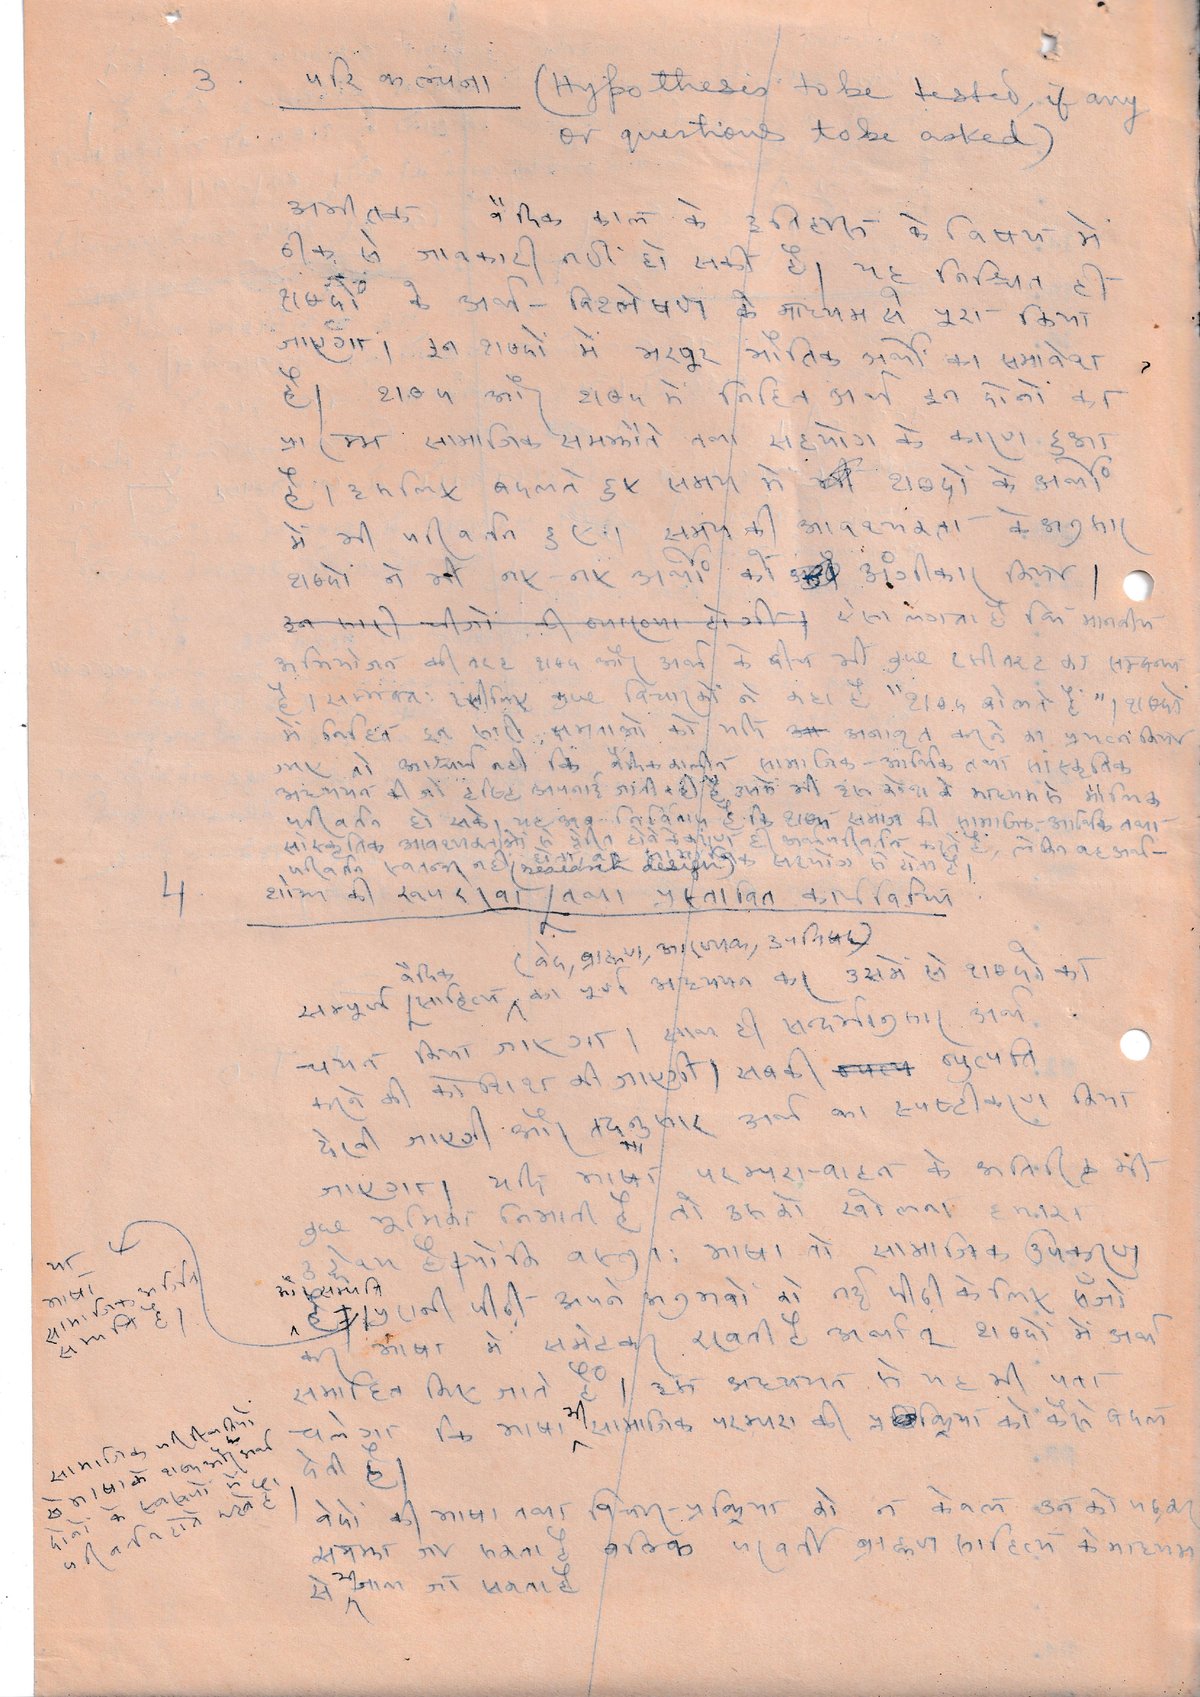 3. परिकल्पना (Hypothesis to be tested, if any
or questions to be asked)
अभीतक वैदिक काल के इतिहास के विषय में
ठीक से जानकारी नहीं हो सकी है। यह निश्चित ही
शब्दों के अर्थ-विश्लेषण के माध्यम से पूरा किया
जाएगा। इन शब्दों में भरपूर भौतिक अर्थों का समावेश
है। शब्द और शब्द में निहित अर्थ इन दोनों का
प्रारम्भ सामाजिक समझौते तथा सहयोग के कारण हुआ
है। इसलिए बदलते हुए समय में शब्दों के अर्थों
में भी परिवर्तन हुए। समय की आवश्यकता के अनुसार
शब्दों ने भी नए-नए अर्थों को अंगीकार किया।
इन सारी चीजों की व्याख्या होगी। ऐसा लगता है कि मानवीय
अभियोजन की तरह शब्द और अर्थ के बीच भी कुछ इसीतरह का सम्बन्ध
है। सम्भवतः इसीलिए कुछ विचारकों ने कहा है "शब्द बोलते हैं"। शब्दों
में निहित इन सारी क्षमताओं को यदि अनावृत करने का प्रयत्न किया
जाए तो आश्चर्य नहीं कि वैदिककालीन सामाजिक-आर्थिक तथा सांस्कृतिक
अध्ययन की जो दृष्टि अपनाई जाती रही है उसमें भी इस के माध्यम से मौलिक
परिवर्तन हो सके। यह अब निर्विवाद है कि शब्द समाज की सामाजिक-आर्थिक तथा
सांस्कृतिक आवश्यकताओं से प्रेरित होने के कारण ही अर्थपरिवर्तन करते हैं, लेकिन यह अर्थ-
परिवर्तन स्वतन्त्र नहीं सहयोग से होता है।
4. शोध की रूपरेखा (research design) तथा प्रस्तावित कार्यविधि
सम्पूर्ण वैदिक साहित्य (वेद, ब्राह्मण, आरण्यक, उपनिषद) का पूर्ण अध्ययन कर उसमें से शब्दों का
चयन किया जाएगा। साथ ही सन्दर्भानुसार अर्थ
करने की कोशिश की जाएगी। सबकी व्युत्पत्ति
देखी जाएगी और तदनुसार अर्थ का स्पष्टीकरण किया
जाएगा। यदि भाषा परम्परा-वाहन के अतिरिक्त भी
कुछ भूमिका निभाती है तो उसको खोलना हमारा
उद्देश्य है क्योंकि वस्तुतः भाषा तो सामाजिक उपकरण
और सम्पत्ति है। पुरानी पीढ़ी अपने अनुभवों को नई पीढ़ी के लिए सँजो
कर भाषा में समेटकर रखती है अर्थात् शब्दों में अर्थ
समाहित किए जाते हैं। इस अध्ययन से यह भी पता
चलेगा कि भाषा भी सामाजिक परम्परा की प्रक्रिया को कैसे बदल
देती है।
वेदों की भाषा तथा विचार-प्रक्रिया को न केवल उनको पढ़कर
समझा जा सकता है बल्कि परवर्ती ब्राह्मण साहित्य के माध्यम
से भी जाना जा सकता है
पर
भाषा
सामाजिक अर्जित
सम्पत्ति है।
सामाजिक परिवर्तनों
से भाषा के शब्द और अर्थ
दोनों के स्वरूपों में सदा
परिवर्तन होते रहते हैं